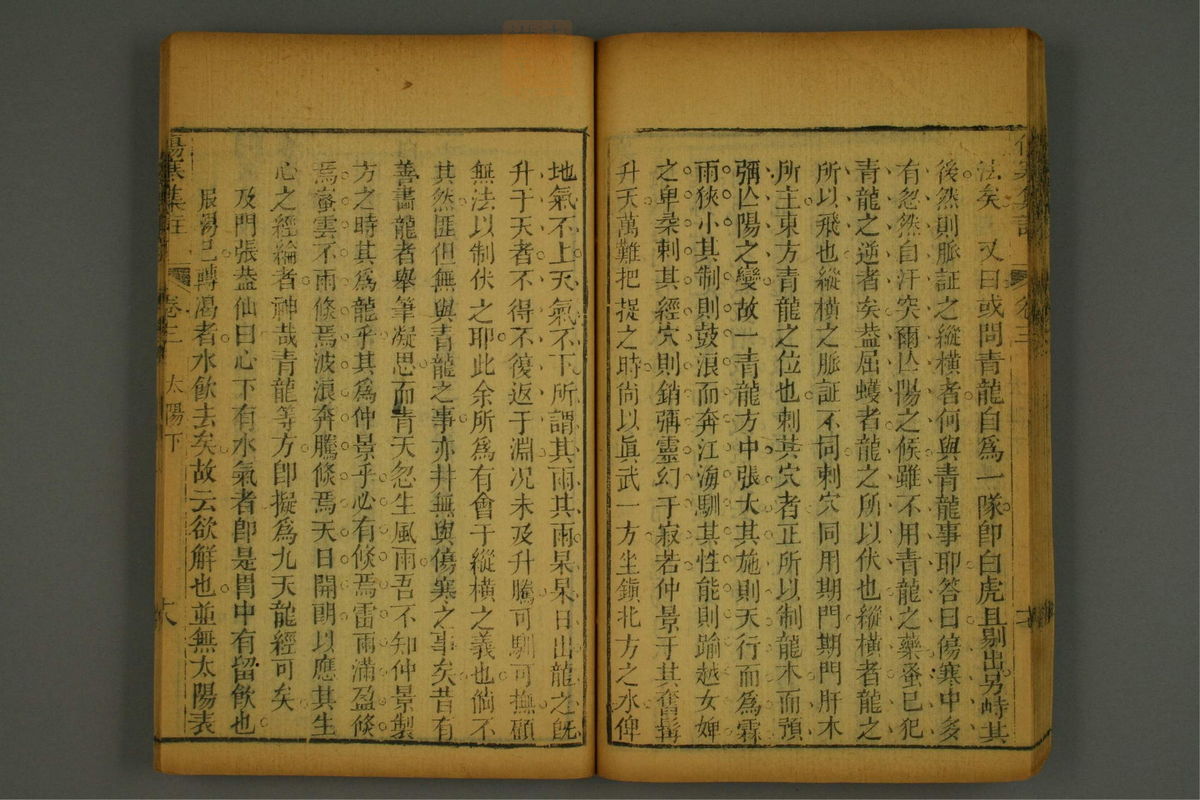 法矣　又曰或問青龍自爲一隊卽白虎且剔出另峙其
後然則脈証之縱橫者何與青龍事耶答曰傷寒中多
有忽然自汗突爾亾陽之候雖不用青龍之藥蚤已犯
青龍之逆者矣葢屈蠖者龍之所以伏也縱橫者龍之
所以飛也縱橫之脈証不同刺穴同用期門期門肝木
所主東方青龍之位也刺其穴者正所以制龍木而預
彌亾陽之變故一青龍方中張大其施則天行而爲霖
雨狹小其制則鼓浪而奔江海馴其性能則踰越女婢
之卑柔刺其經穴則銷彌靈幻于寂若仲景于其奮髯
升天萬難把捉之時尙以眞武一方坐鎭北方之水俾
地氣不上天氣不下所謂其雨其雨杲杲日出龍之旣
升于天者不得不復返于淵况未及升騰可馴可撫顧
無法以制伏之耶此余所爲有會于縱橫之義也倘不
其然匪但無與青龍之事亦并無與傷寒之事矣昔有
善畵龍者舉筆凝思而青天忽生風雨吾不知仲景製
方之時其爲龍乎其爲仲景乎必有倏焉雷雨滿盈倏
焉密雲不雨倏焉波浪奔騰倏焉天日開朗以應其生
心之經綸者神哉青龍等方卽擬爲九天龍經可矣
及門張葢仙曰心下有水氣者卽是胃中有留飲也
服湯已轉渴者水飲去矣故云欲解也並無太陽表
傷寒集註
卷三
太陽下